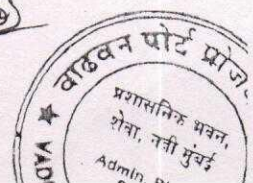 वाढवन पोर्ट प्रोज
प्रशासनिक भवन,
शेवा, नवी मुंबई
Admin
VAD